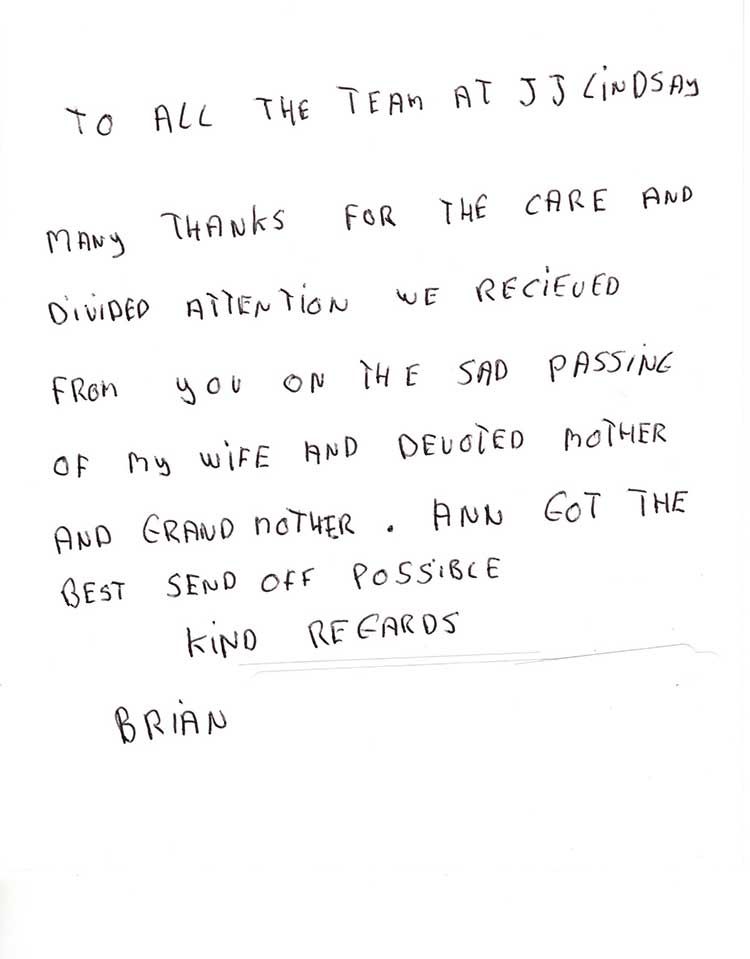 TO ALL THE TEAM AT JJ LiNDSAy
MANy THANKS FOR THE CARE AND
DiViDED ATTENTiON WE RECiEVED
FROM yOU ON THE SAD PASSiNG
OF My WiFE AND DEVOTED MOTHER
AND GRAND MOTHER. ANN GOT THE
BEST SEND OFF POSSiBLE
KiND REGARDS
BRiAN